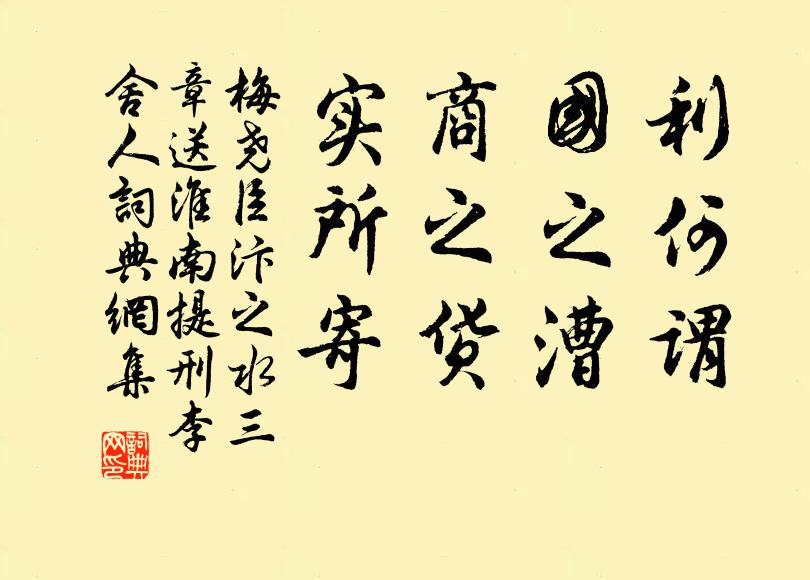 利何謂
國之漕
商之货
实所寄
梅尧臣汴之水三
章送淮南提刑李
舍人詞典網集
詞典
网印